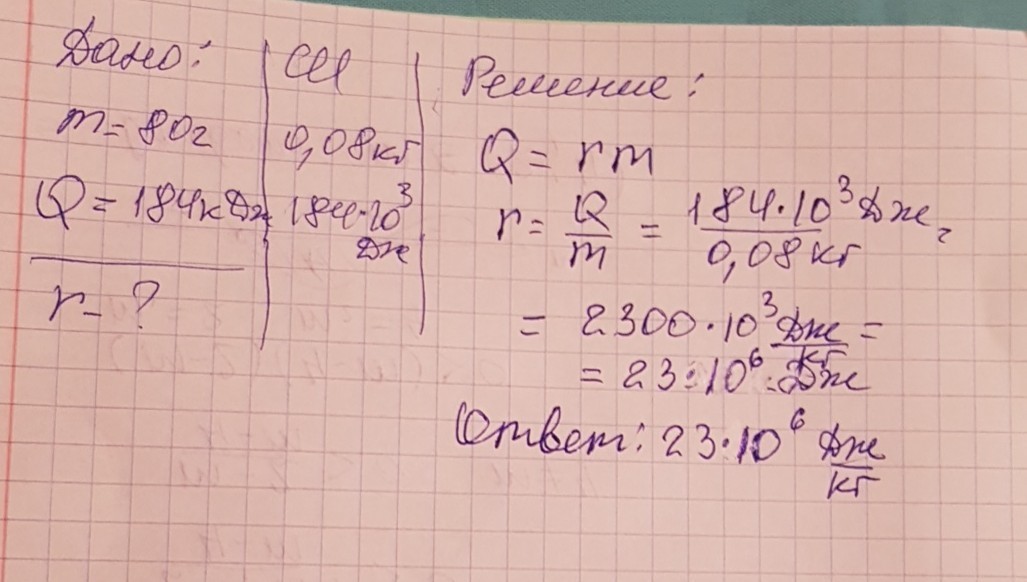 Дано:
m = 80г
Q = 184кДж
r - ?
СИ
0,08кг
184·10³
Дж
Решение:
Q = rm
r = Q/m = 184·10³Дж/0,08кг =
= 2300·10³ Дж/кг =
= 23·10⁶ Дж
Ответ: 23·10⁶ Дж/кг